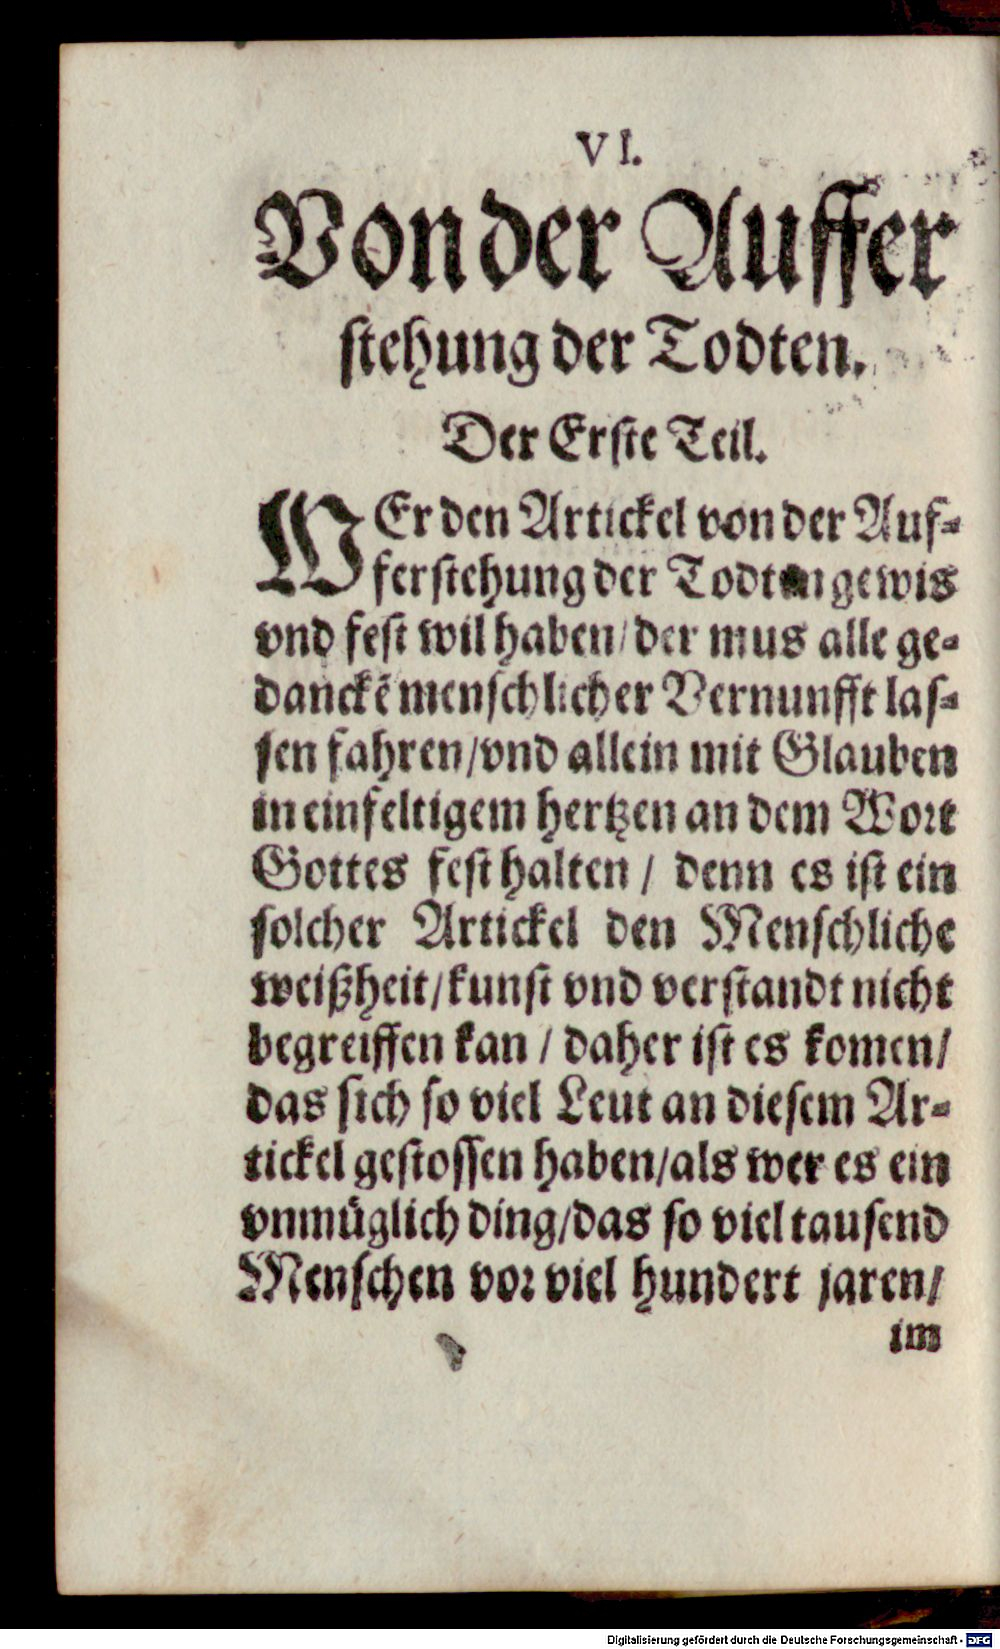 VI.
Von der Auffer
stehung der Todten.
Der Erste Teil.
WEr den Artickel von der Auf-
ferstehung der Todten gewis
vnd fest wil haben/ der mus alle ge-
danckẽ menschlicher Vernunfft las-
sen fahren/vnd allein mit Glauben
in einfeltigem hertzen an dem Wort
Gottes fest halten / denn es ist ein
solcher Artickel den Menschliche
weißheit/kunst vnd verstandt nicht
begreiffen kan / daher ist es komen/
das sich so viel Leut an diesem Ar-
tickel gestossen haben/als wer es ein
vnmüglich ding/das so viel tausend
Menschen vor viel hundert jaren/
im
Digitalisierung gefördert durch die Deutsche Forschungsgemeinschaft - DFG